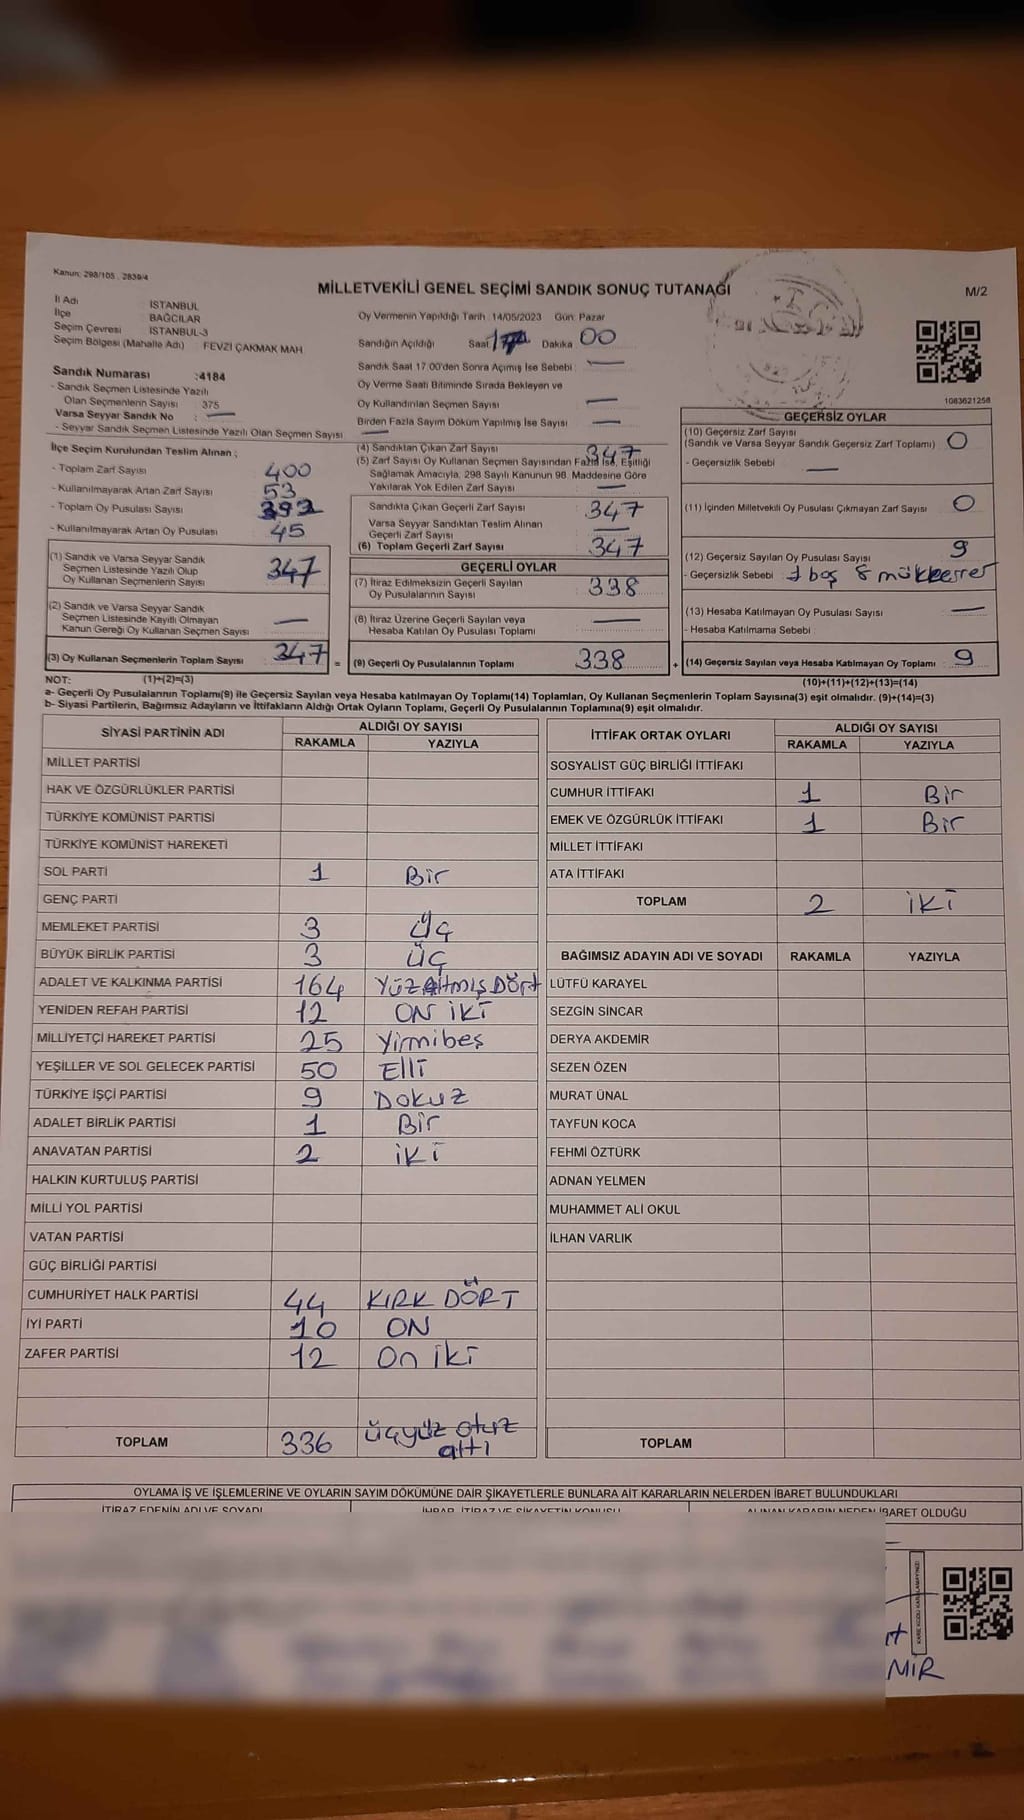 Kanun: 298/105 . 2839/4
MİLLETVEKİLİ GENEL SEÇİMİ SANDIK SONUÇ TUTANAĞI
M/2
İl Adı : İSTANBUL
İlçe : BAĞCILAR
Seçim Çevresi : İSTANBUL-3
Seçim Bölgesi (Mahalle Adı) : FEVZİ ÇAKMAK MAH
Sandık Numarası :4184
- Sandık Seçmen Listesinde Yazılı
Olan Seçmenlerin Sayısı : 375
Varsa Seyyar Sandık No : —
- Seyyar Sandık Seçmen Listesinde Yazılı Olan Seçmen Sayısı : —
Oy Vermenin Yapıldığı Tarih :14/05/2023 Gün: Pazar
Sandığın Açıldığı Saat 17 Dakika 00
Sandık Saat 17:00'den Sonra Açımış İse Sebebi : —
Oy Verme Saati Bitiminde Sırada Bekleyen ve
Oy Kullandırılan Seçmen Sayısı : —
Birden Fazla Sayım Döküm Yapılmış İse Sayısı : —
1083621258
İlçe Seçim Kurulundan Teslim Alınan ;
- Toplam Zarf Sayısı : 400
- Kullanılmayarak Artan Zarf Sayısı : 53
- Toplam Oy Pusulası Sayısı : 392
- Kullanılmayarak Artan Oy Pusulası : 45
(1) Sandık ve Varsa Seyyar Sandık
Seçmen Listesinde Yazılı Olup
Oy Kullanan Seçmenlerin Sayısı : 347
(2) Sandık ve Varsa Seyyar Sandık
Seçmen Listesinde Kayıtlı Olmayan
Kanun Gereği Oy Kullanan Seçmen Sayısı : —
(3) Oy Kullanan Seçmenlerin Toplam Sayısı : 347 =
(4) Sandıktan Çıkan Zarf Sayısı : 347
(5) Zarf Sayısı Oy Kullanan Seçmen Sayısından Fazla İse, Eşitliği
Sağlamak Amacıyla, 298 Sayılı Kanunun 98. Maddesine Göre
Yakılarak Yok Edilen Zarf Sayısı : —
Sandıkta Çıkan Geçerli Zarf Sayısı : 347
Varsa Seyyar Sandıktan Teslim Alınan
Geçerli Zarf Sayısı : —
(6) Toplam Geçerli Zarf Sayısı : 347
GEÇERLİ OYLAR
(7) İtiraz Edilmeksizin Geçerli Sayılan
Oy Pusulalarının Sayısı : 338
(8) İtiraz Üzerine Geçerli Sayılan veya
Hesaba Katılan Oy Pusulası Toplamı : —
(9) Geçerli Oy Pusulalarının Toplamı : 338 +
GEÇERSİZ OYLAR
(10) Geçersiz Zarf Sayısı
(Sandık ve Varsa Seyyar Sandık Geçersiz Zarf Toplamı) : 0
- Geçersizlik Sebebi : —
(11) İçinden Milletvekili Oy Pusulası Çıkmayan Zarf Sayısı : 0
(12) Geçersiz Sayılan Oy Pusulası Sayısı : 9
- Geçersizlik Sebebi : 1 boş 8 mükerrer
(13) Hesaba Katılmayan Oy Pusulası Sayısı : —
- Hesaba Katılmama Sebebi :
(14) Geçersiz Sayılan veya Hesaba Katılmayan Oy Toplamı : 9
NOT: (1)+(2)=(3) (10)+(11)+(12)+(13)=(14)
a- Geçerli Oy Pusulalarının Toplamı(9) ile Geçersiz Sayılan veya Hesaba katılmayan Oy Toplamı(14) Toplamları, Oy Kullanan Seçmenlerin Toplam Sayısına(3) eşit olmalıdır. (9)+(14)=(3)
b- Siyasi Partilerin, Bağımsız Adayların ve İttifakların Aldığı Ortak Oyların Toplamı, Geçerli Oy Pusulalarının Toplamına(9) eşit olmalıdır.
SİYASİ PARTİNİN ADI ALDIĞI OY SAYISI
RAKAMLA YAZIYLA
MİLLET PARTİSİ
HAK VE ÖZGÜRLÜKLER PARTİSİ
TÜRKİYE KOMÜNİST PARTİSİ
TÜRKİYE KOMÜNİST HAREKETİ
SOL PARTİ 1 Bir
GENÇ PARTİ
MEMLEKET PARTİSİ 3 Üç
BÜYÜK BİRLİK PARTİSİ 3 Üç
ADALET VE KALKINMA PARTİSİ 164 YüzAltmışDört
YENİDEN REFAH PARTİSİ 12 ON İKİ
MİLLİYETÇİ HAREKET PARTİSİ 25 Yirmibeş
YEŞİLLER VE SOL GELECEK PARTİSİ 50 Elli
TÜRKİYE İŞÇİ PARTİSİ 9 Dokuz
ADALET BİRLİK PARTİSİ 1 Bir
ANAVATAN PARTİSİ 2 iKİ
HALKIN KURTULUŞ PARTİSİ
MİLLİ YOL PARTİSİ
VATAN PARTİSİ
GÜÇ BİRLİĞİ PARTİSİ
CUMHURİYET HALK PARTİSİ 44 KIRK DÖRT
İYİ PARTİ 10 ON
ZAFER PARTİSİ 12 On iki
TOPLAM 336 üçyüz otuz altı
İTTİFAK ORTAK OYLARI ALDIĞI OY SAYISI
RAKAMLA YAZIYLA
SOSYALİST GÜÇ BİRLİĞİ İTTİFAKI
CUMHUR İTTİFAKI 1 Bir
EMEK VE ÖZGÜRLÜK İTTİFAKI 1 Bir
MİLLET İTTİFAKI
ATA İTTİFAKI
TOPLAM 2 iKİ
BAĞIMSIZ ADAYIN ADI VE SOYADI RAKAMLA YAZIYLA
LÜTFÜ KARAYEL
SEZGİN SİNCAR
DERYA AKDEMİR
SEZEN ÖZEN
MURAT ÜNAL
TAYFUN KOCA
FEHMİ ÖZTÜRK
ADNAN YELMEN
MUHAMMET ALİ OKUL
İLHAN VARLIK
TOPLAM
OYLAMA İŞ VE İŞLEMLERİNE VE OYLARIN SAYIM DÖKÜMÜNE DAİR ŞİKAYETLERLE BUNLARA AİT KARARLARIN NELERDEN İBARET BULUNDUKLARI
İTİRAZ EDENİN ADI VE SOYADI İHBAR, İTİRAZ VE ŞİKAYETİN KONUSU ALINAN KARARIN NEDEN İBARET OLDUĞU
MİR